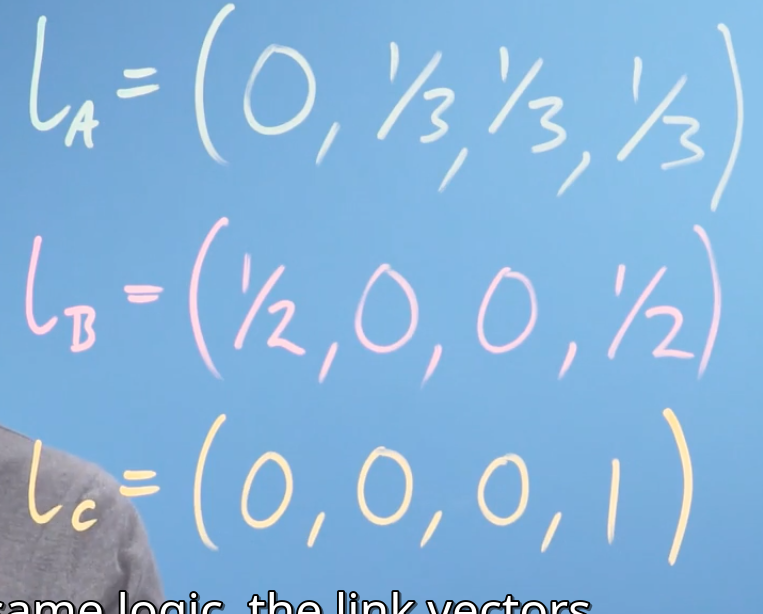 l_A = (0, 1/3, 1/3, 1/3)
l_B = (1/2, 0, 0, 1/2)
l_C = (0, 0, 0, 1)
same logic, the link vectors